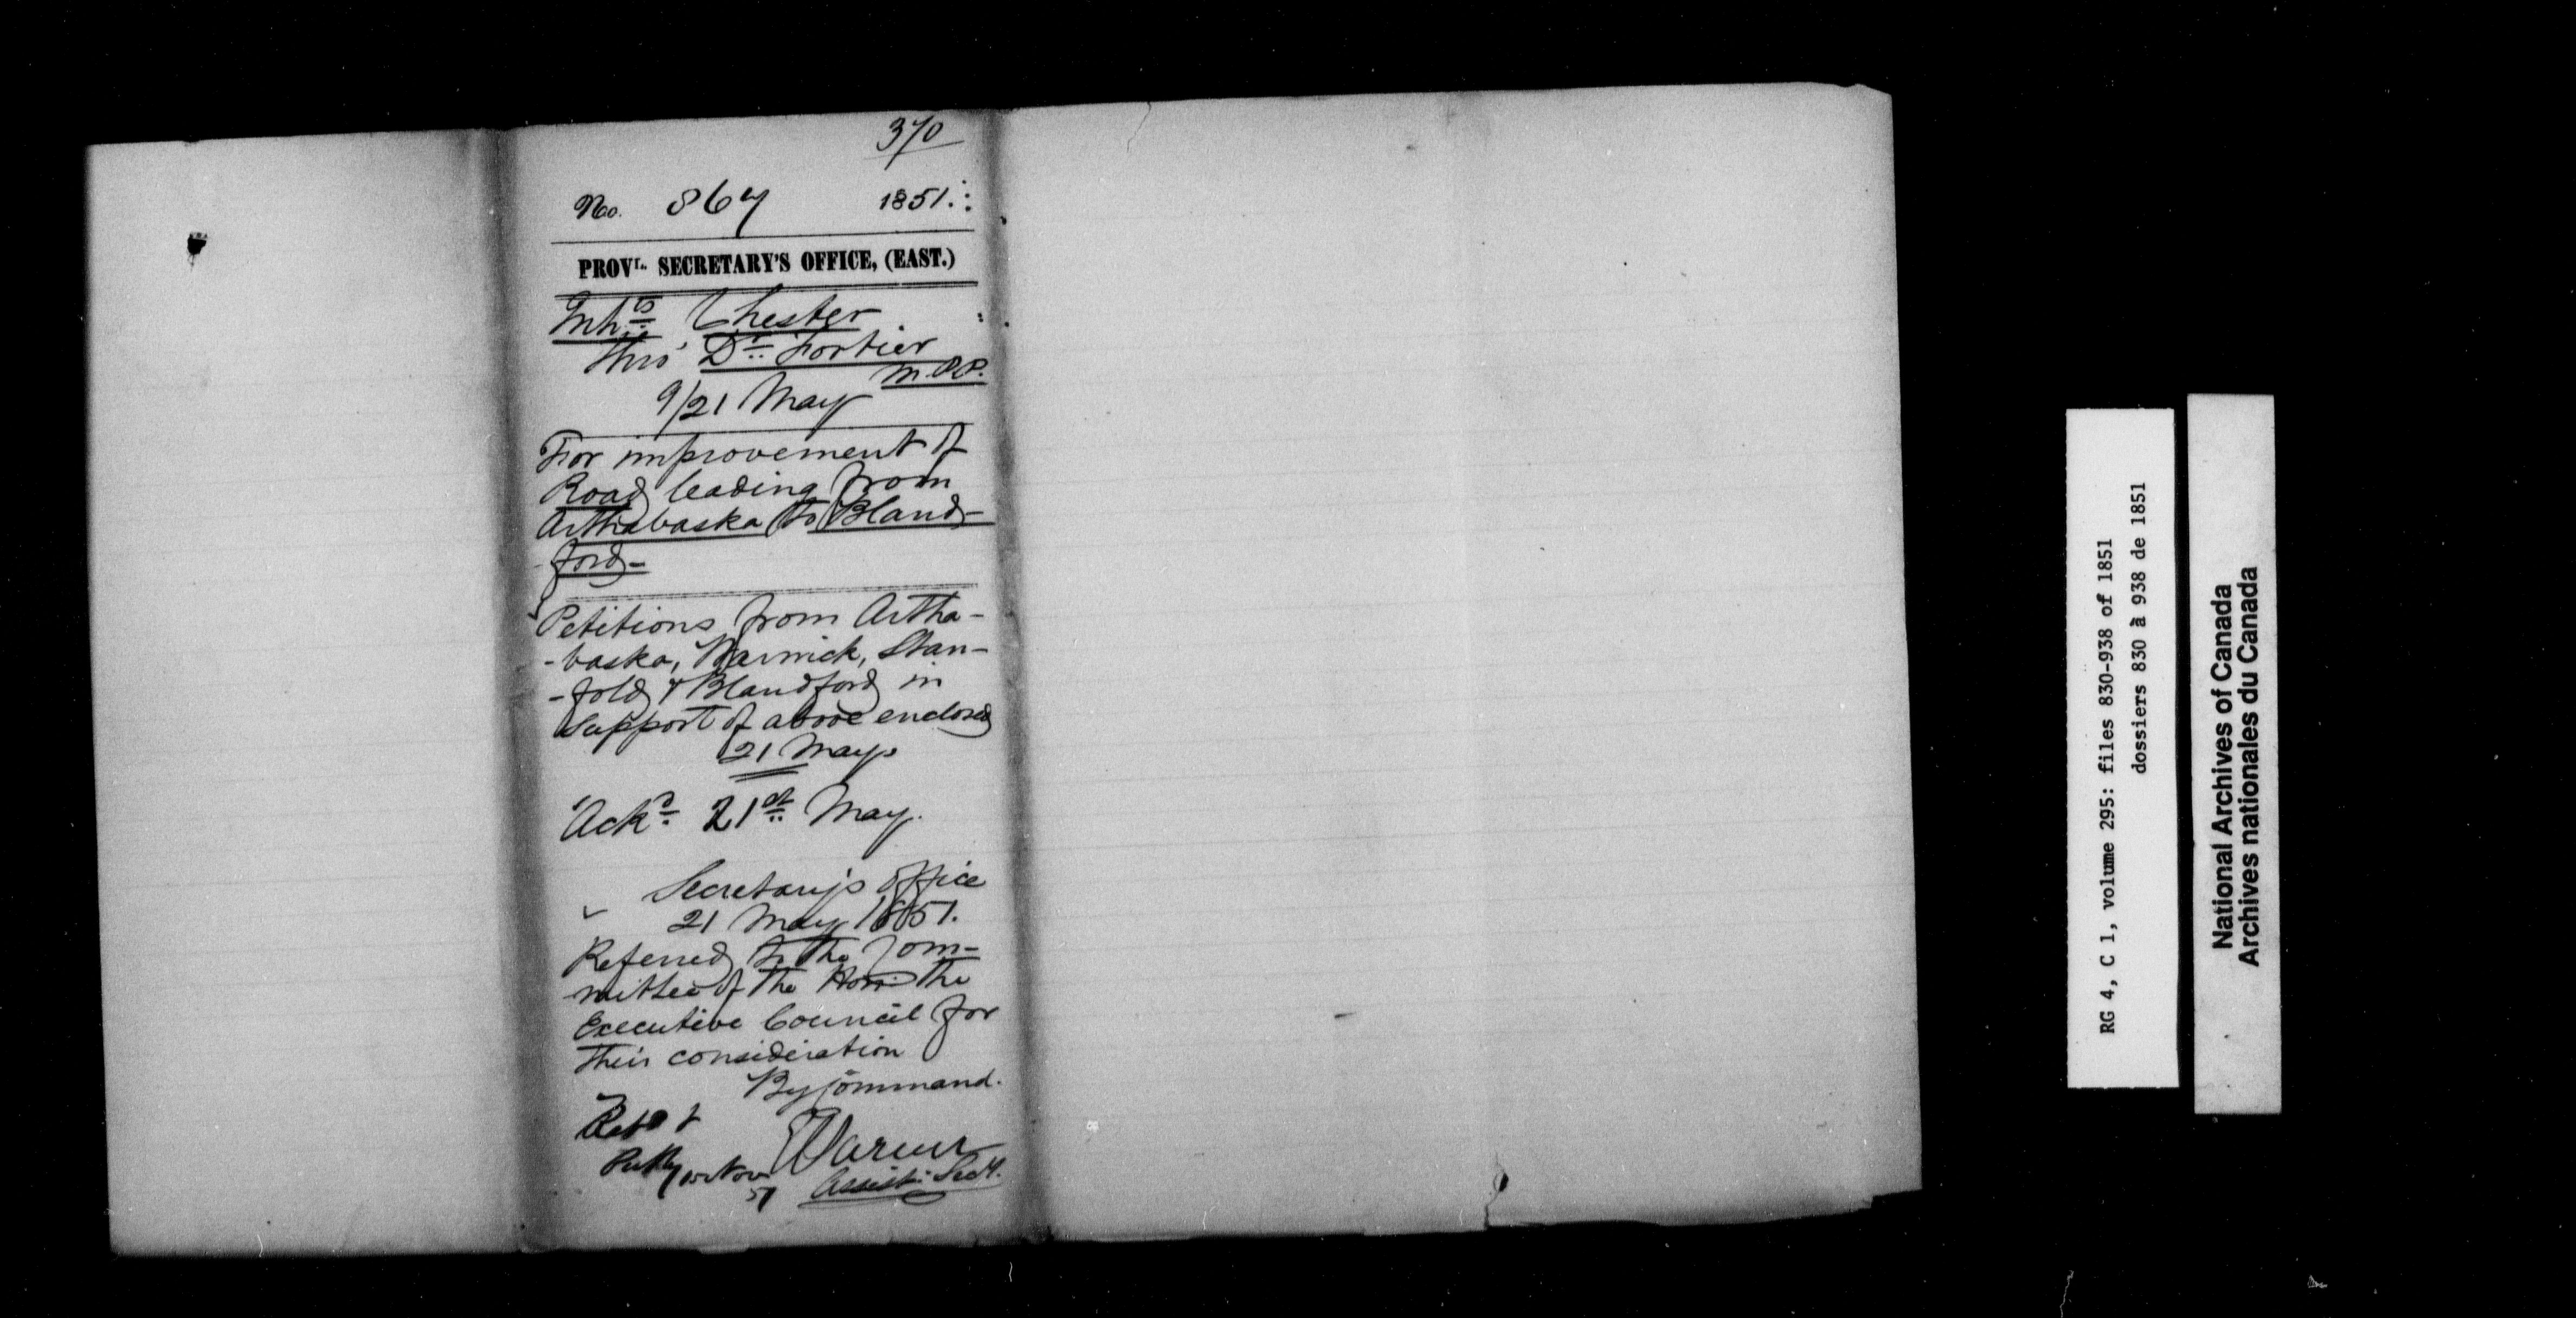 370
No. 867 1851.
PROVL. SECRETARY'S OFFICE, (EAST.)
Inhts Chester
thro' Dr. Fortier
M.P.P.
9/21 May
For improvement of
Road leading from
Arthabaska to Bland-
ford-
Petitions from Artha-
-baska, Warwick, Stan-
-fold & Blandford in
support of above enclosed
21 May
Ackd. 21st May.
Secretary's Office
21 May 1851.
Referred to the Com-
mittee of the Hon. the
Executive Council for
their consideration
By Command.
Nov
51
Assist. Secy.
RG 4, C 1, volume 295: files 830-938 of 1851
dossiers 830 à 938 de 1851
National Archives of Canada
Archives nationales du Canada